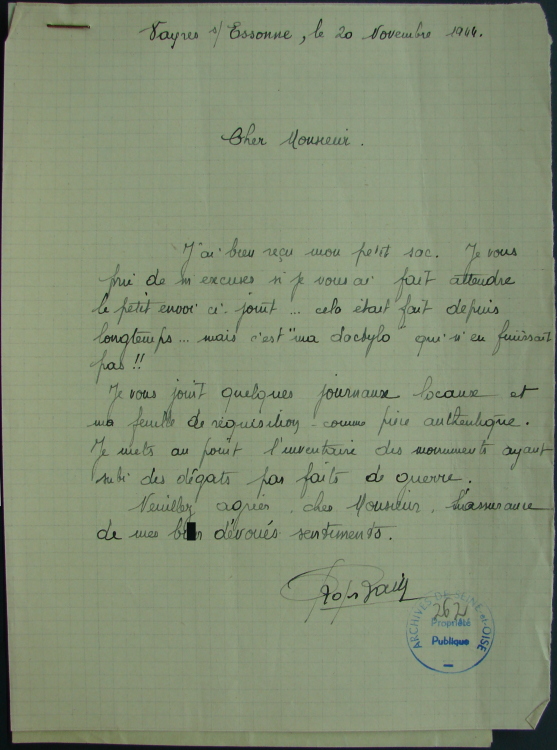 Vayres s/ Essonne, le 20 Novembre 1944.
Cher Monsieur.
J'ai bien reçu mon petit sac. Je vous
prie de m'excuser si je vous ai fait attendre
le petit envoi ci-joint... cela était fait depuis
longtemps... mais c'est "ma dactylo" qui n'en finissait
pas!!
Je vous joint quelques journaux locaux et
ma feuille de réquisition - comme pièce authentique.
Je mets au point l'inventaire des monuments ayant
subi des dégats par faits de guerre.
Veuillez agréer, cher Monsieur, l'assurance
de mes bien dévoués sentiments.
ARCHIVES DE SEINE-et-OISE
262
Propriété
Publique